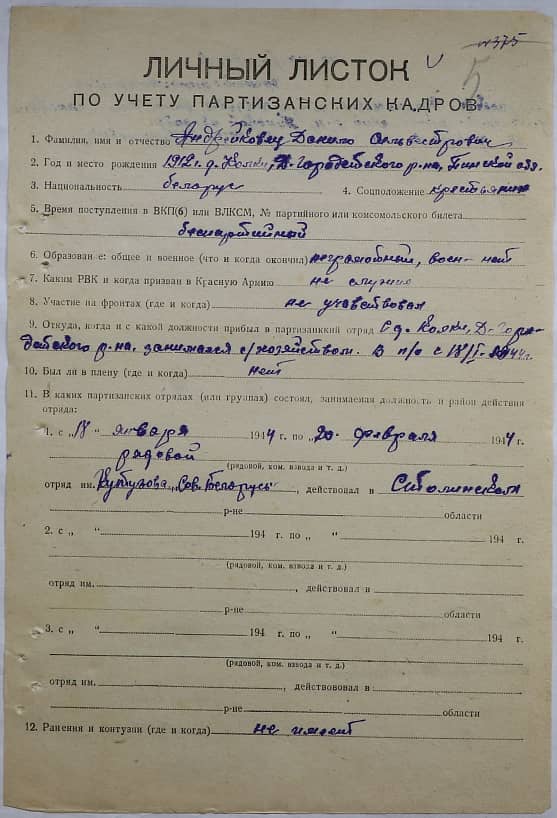 №375
5
ЛИЧНЫЙ ЛИСТОК
ПО УЧЕТУ ПАРТИЗАНСКИХ КАДРОВ
1. Фамилия, имя и отчество Андрейковец Данило Сильвестрович
2. Год и место рождения 1912 г. д. Колки, Д-Городетского р-на, Пинской обл.
3. Национальность беларус 4. Соцположение крестьянин
5. Время поступления в ВКП(б) или ВЛКСМ, № партийного или комсомольского билета
беспартийный
6. Образован е: общее и военное (что и когда окончил) неграмотный, воен- нет
7. Каким РВК и когда призван в Красную Армию не служил
8. Участие на фронтах (где и когда) не учавствовал
9. Откуда, когда и с какой должности прибыл в партизанкий отряд С д. Колки, Д-Горо-
детского р-на. занимался с/хозяйством. В п/о с 18/I-1944г.
10. Был ли в плену (где и когда) нет
11. В каких партизанских отрядах (или группах) состоял, занимаемая должность и район действия
отряда:
1. с „18" января 1944 г. по „20" февраля 1944 г.
рядовой
(рядовой, ком. взвода и т. д.)
отряд им. Кутузова, „Сов. Беларусь", действовал в Столинском
р-не области
2. с „ " 194 г. по „ " 194 г.
(рядовой, ком. взвода и т. д.)
отряд им. , действовал в
р-не области
3. с „ " 194 г. по „ " 194 г.
(рядовой, ком. взвода и т. д.)
отряд им. , действововал в
р-не области
12. Ранения и контузии (где и когда) не имеет